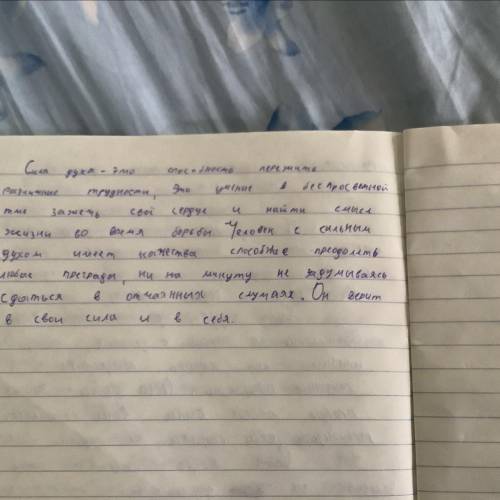 Сила духа - это способность пережить
различные трудности, это умение в беспросветной
тьме зажечь своё сердце и найти смысл
жизни во время борьбы. Человек с сильным
духом имеет качества способные преодолеть
любые преграды, ни на минуту не задумываясь
сдаться в отчаянных случаях. Он верит
в свои сила и в себя.